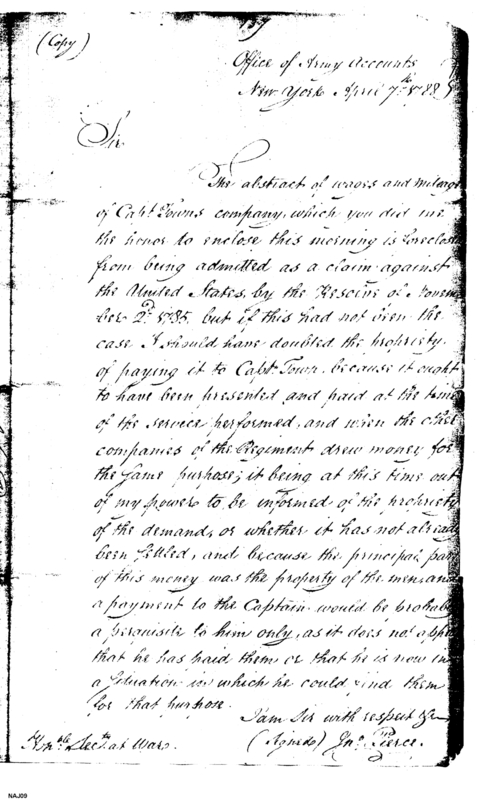 (Copy)
Office of Army Accounts
New York April 7th 1788
Sir
The abstract of wages and mileage
of Capt. Towns company, which you did me
the honor to enclose this morning is foreclos
from being admitted as a claim against
the United States, by the Resolve of Novem
ber 2d 1785, but if this had not been the
case I should have doubted the propriety
of paying it to Capt. Town, because it ought
to have been presented and paid at the time
of the service performed, and when the other
companies of the Regiment drew money for
the same purpose; it being at this time out
of my power to be informed of the propriety
of the demand, or whether it has not alread
been settled, and because the principal par
of this money was the property of the men, and
a payment to the Captain would be probab
a perquisite to him only, as it does not appe
that he has paid them or that he is now in
a situation in which he could find them
for that purpose.
I am Sir with respect &c
Honble Secty at War.
(Signed) Jno. Pierce.
NAJ09